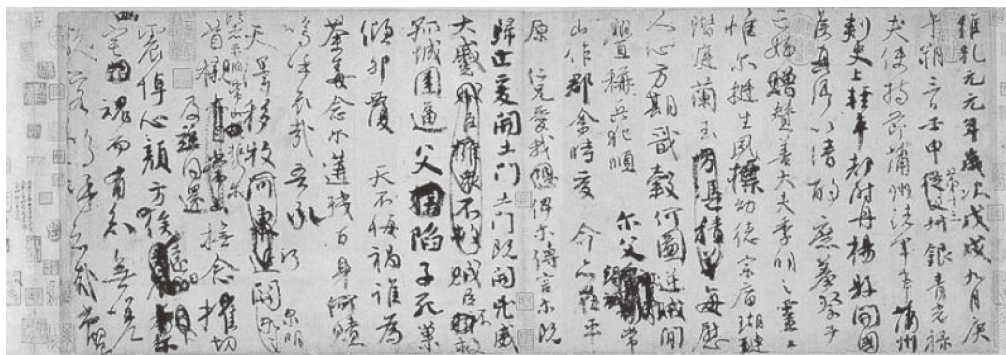 維乾元元年歲次戊戌九月庚
午朔三日壬申第十三從父銀青光祿
夫使持節蒲州諸軍事蒲州
刺史上輕車都尉丹楊縣開國
侯真卿以清酌庶羞祭于
亡姪贈贊善大夫季明之靈曰
惟爾挺生夙標幼德宗廟瑚璉
階庭蘭玉每慰
人心方期戩穀何圖逆賊間
釁稱兵犯順爾父竭誠常
山作郡余時受命亦在平
原仁兄愛我俾爾傳言爾既
歸止爰開土門土門既開凶威
大蹙賊臣不救
孤城圍逼父陷子死巢
傾卵覆天不悔禍誰為
荼毒念爾遘殘百身何贖
嗚呼哀哉吾承
天澤移牧河關泉明
比者再陷常山攜爾
首櫬及茲同還撫念摧切
震悼心顏方俟
宅魂而有知無嗟
久客嗚呼哀哉尚饗